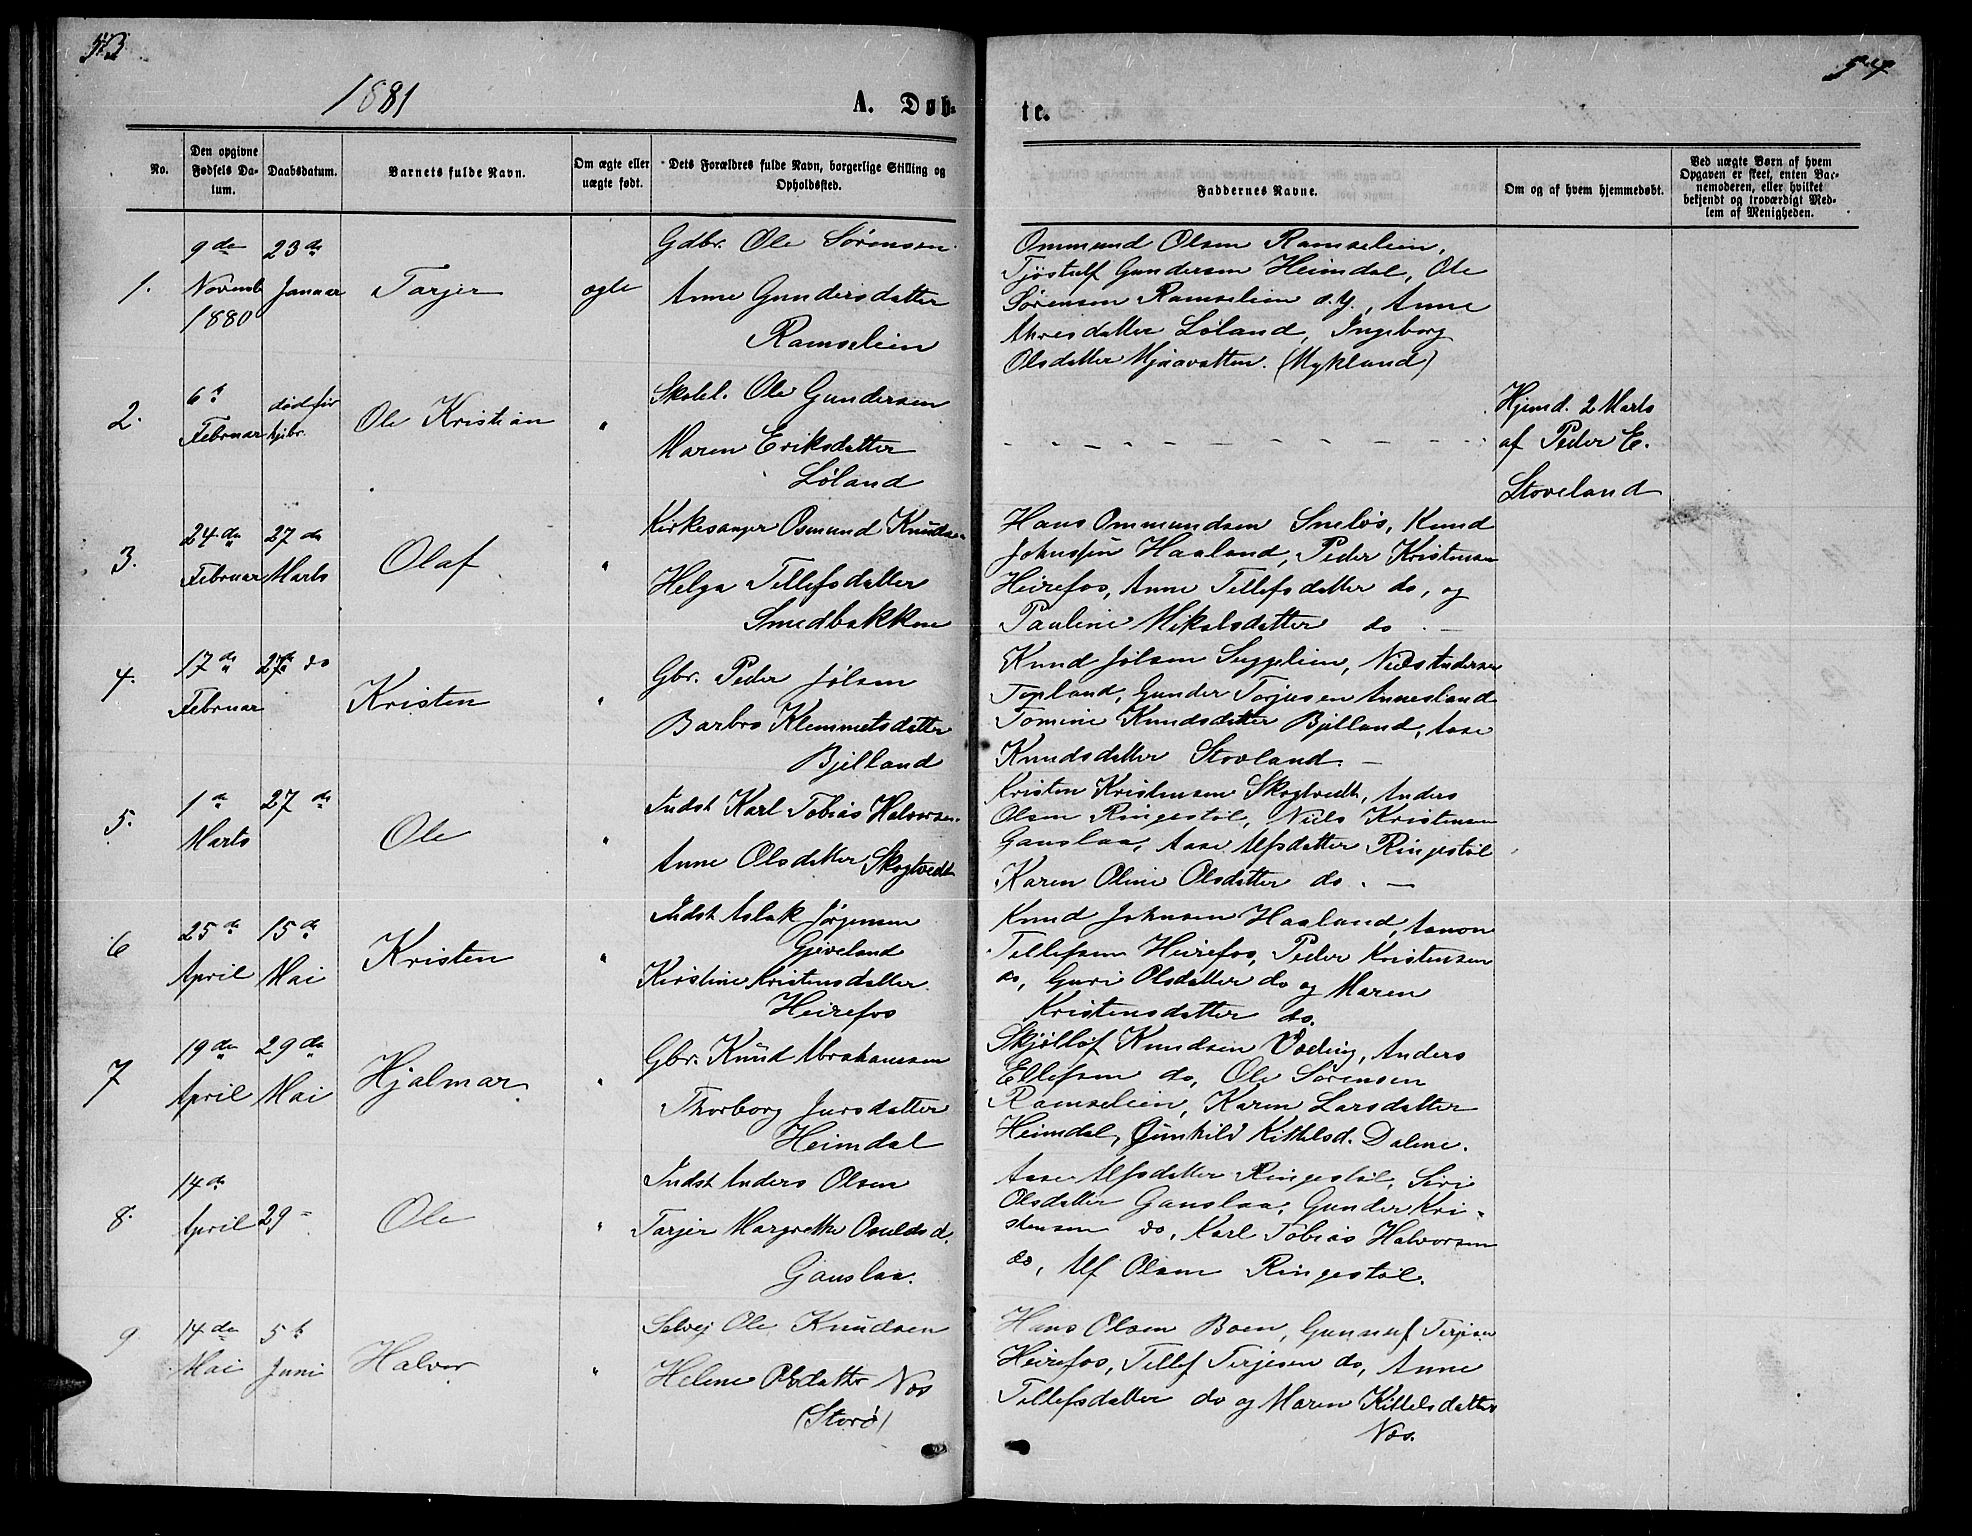 53
54
1881
A. Døb-
te.
No.
Den opgivne Fødsels Da-
tum.
Daabsdatum.
Barnets fulde Navn.
Om ægte eller uægte født.
Dets Forældres fulde Navn, borgerlige Stilling og Opholdssted.
Faddernes Navne.
Om og af hvem hjemmedøbt.
Ved uægte Børn af hvem
Opgaven er skeet, enten Bar-
nemoderen, eller hvilket
bekjendt og troværdigt Med-
lem af Menigheden.
1.
9de Novemb 1880
23de Januar
Tarjer
ægte
Gdbr. Ole Sørensen
Anne Gundersdatter
Ramselien
Ommund Olsen Ramselien,
Tjøstulf Gundersen Heimdal, Ole
Sørensen Ramselien d.y., Anne
Løland, Ingeborg
Olsdatter Mjaavatten. (Mykland)
2.
6t Februar
død før kjbr.
Ole Kristian
"
Skolel. Ole Gundersen
Maren Eriksdatter
Løland
Hjemd. 2 Marts
af Peder E.
Stoveland
3.
24de Februar
27de Marts
Olaf
"
Kirkesanger Osmund Knudsen
Helga Tellefsdatter
Smedbakken
Hans Ommundsen Sneløs, Knud
Johnsen Haaland, Peder Kristensen
Heirefos, Anne Tellefsdatter do, og
Pauline Mikalsdatter do. —
4.
17de Februar
27de do
Kristen
"
Gbr. Peder Jølsen
Barbro Klemmetsdatter
Bjelland
Knud Jølsen Suggelien, Niels Andersen
Topland, Gunder Torjusen Annesland
Tomine Knudsdatter Bjelland, Aase
Knudsdatter Stovland. —
5.
1de Marts
27de
Ole
"
Indst Karl Tobias Halvorsen.
Anne Olsdatter Skogtvedt
Kristen Kristensen Skogtvedt, Anders
Olsen Ringestøl, Niels Kristensen
Gauslaa, Aase Alfsdatter Ringestøl
Karen Oline Olsdatter do. —
6
25de April
15de Mai
Kristen
"
Indst Aslak Jørgensen
Gjeveland
Kirstine Kristensdatter
Heirefos
Knud Johnsen Haaland, Aanon
Tellefsen Heirefos, Peder Kristensen
do, Guri Olsdatter do og Maren
Kristensdatter do.
7
19de April
29de Mai
Hjalmar
"
Gbr. Knud Abrahamsen
Thorborg Jursdatter
Heimdal
Skjøllof Knudsen Væting, Anders
Ellefsen do, Ole Sørensen
Ramselien, Karen Larsdatter
Heimdal, Gunhild Kittelsd. Dalene.
8.
14de April
29
Ole
"
Indst Anders Olsen
Tarjer Margrethe Osuldsd.
Gauslaa.
Aase Alfsdatter Ringestøl, Siri
Olsdatter Gauslaa, Gunder Kri-
stensen do, Karl Tobias Halvorsen
do, Alf Olsen Ringestøl.
9.
14de Mai
5t Juni
Halvor
"
Selvej Ole Knudsen
Helene Olsdatter Næs
(Storø)
Hans Olsen Boen, Gunnuf Terjesen
Heirefos, Tellef Terjesen do, Anne
Tellefsdatter do og Maren Kittelsdatter
Næs.